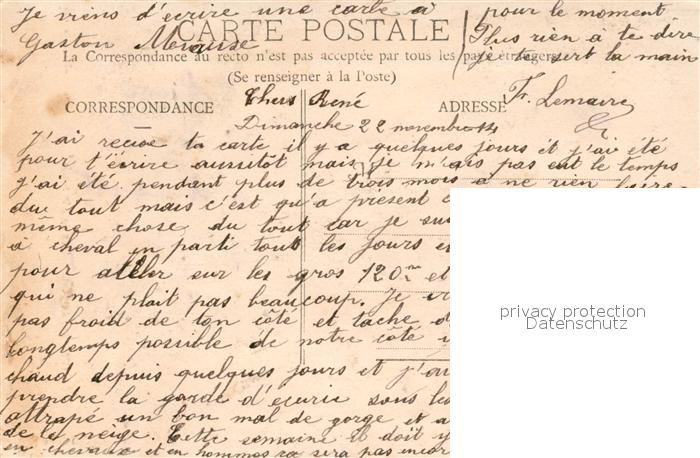 Je viens d'écrire une carte a
Gaston
pour le moment
Plus rien à te dire
je te sert la main
Fr. Lemaire
CARTE POSTALE
La Correspondance au recto n'est pas acceptée par tous les pays étrangers
(Se renseigner à la Poste)
CORRESPONDANCE
ADRESSE
Cher René
Dimanche 22 novembre 14
J'ai recue ta carte il y a quelques jours et j'ai été
pour t'écrire aussitôt mais je m'ais pas eut le temps
j'ai été pendant plus de trois mois a ne rien faire
du tout mais c'est qu'a present
même chose du tout car je
a cheval en parti tout les jours
pour aller sur les gros 120m et
qui ne plait pas beaucoup. Je
pas froid de ton côté et tache
longtemps possible de notre côté
chaud depuis quelques jours et j'
prendre la garde d'écurie sous
attrapé un bon mal de gorge et
de la neige. Cette semaine il doit y
en chevaux et en hommes sera pas encor
privacy protection
Datenschutz